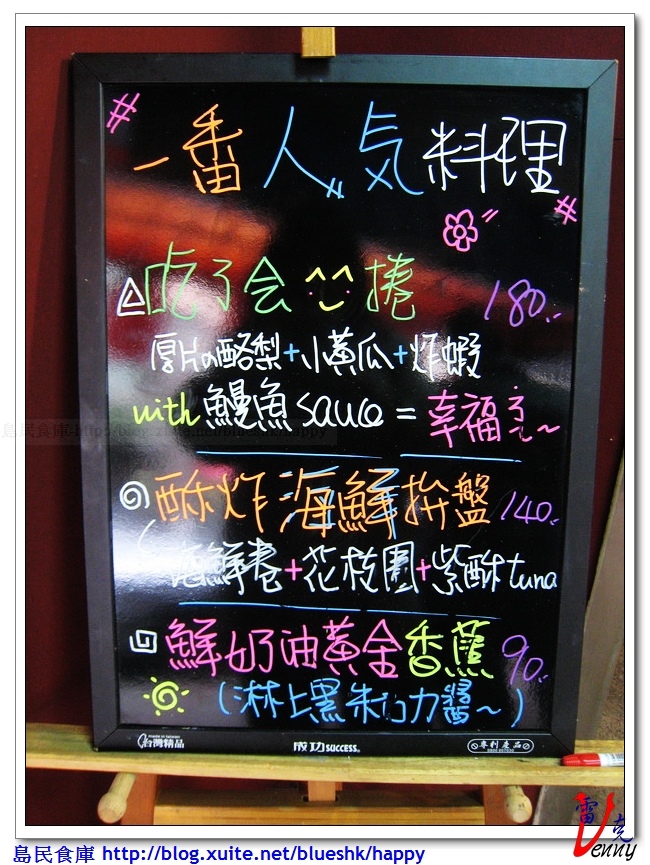 一番人気料理
吃了会捲 180.
厚片の酪梨+小黃瓜+炸蝦
with 鰻魚 sauce = 幸福ㄋㄟ~
酥炸海鮮拚盤 140.
海鮮卷+花枝圓+紫酥tuna
鮮奶油黃金香蕉 90.
(淋上黑朱力醬~)
made in taiwan
台灣精品
成功 SUCCESS
專利產品
島民食庫 http://blog.xuite.net/blueshk/happy
雷克
Venny
島民食庫 http://blog.xuite.net/blueshk/happy